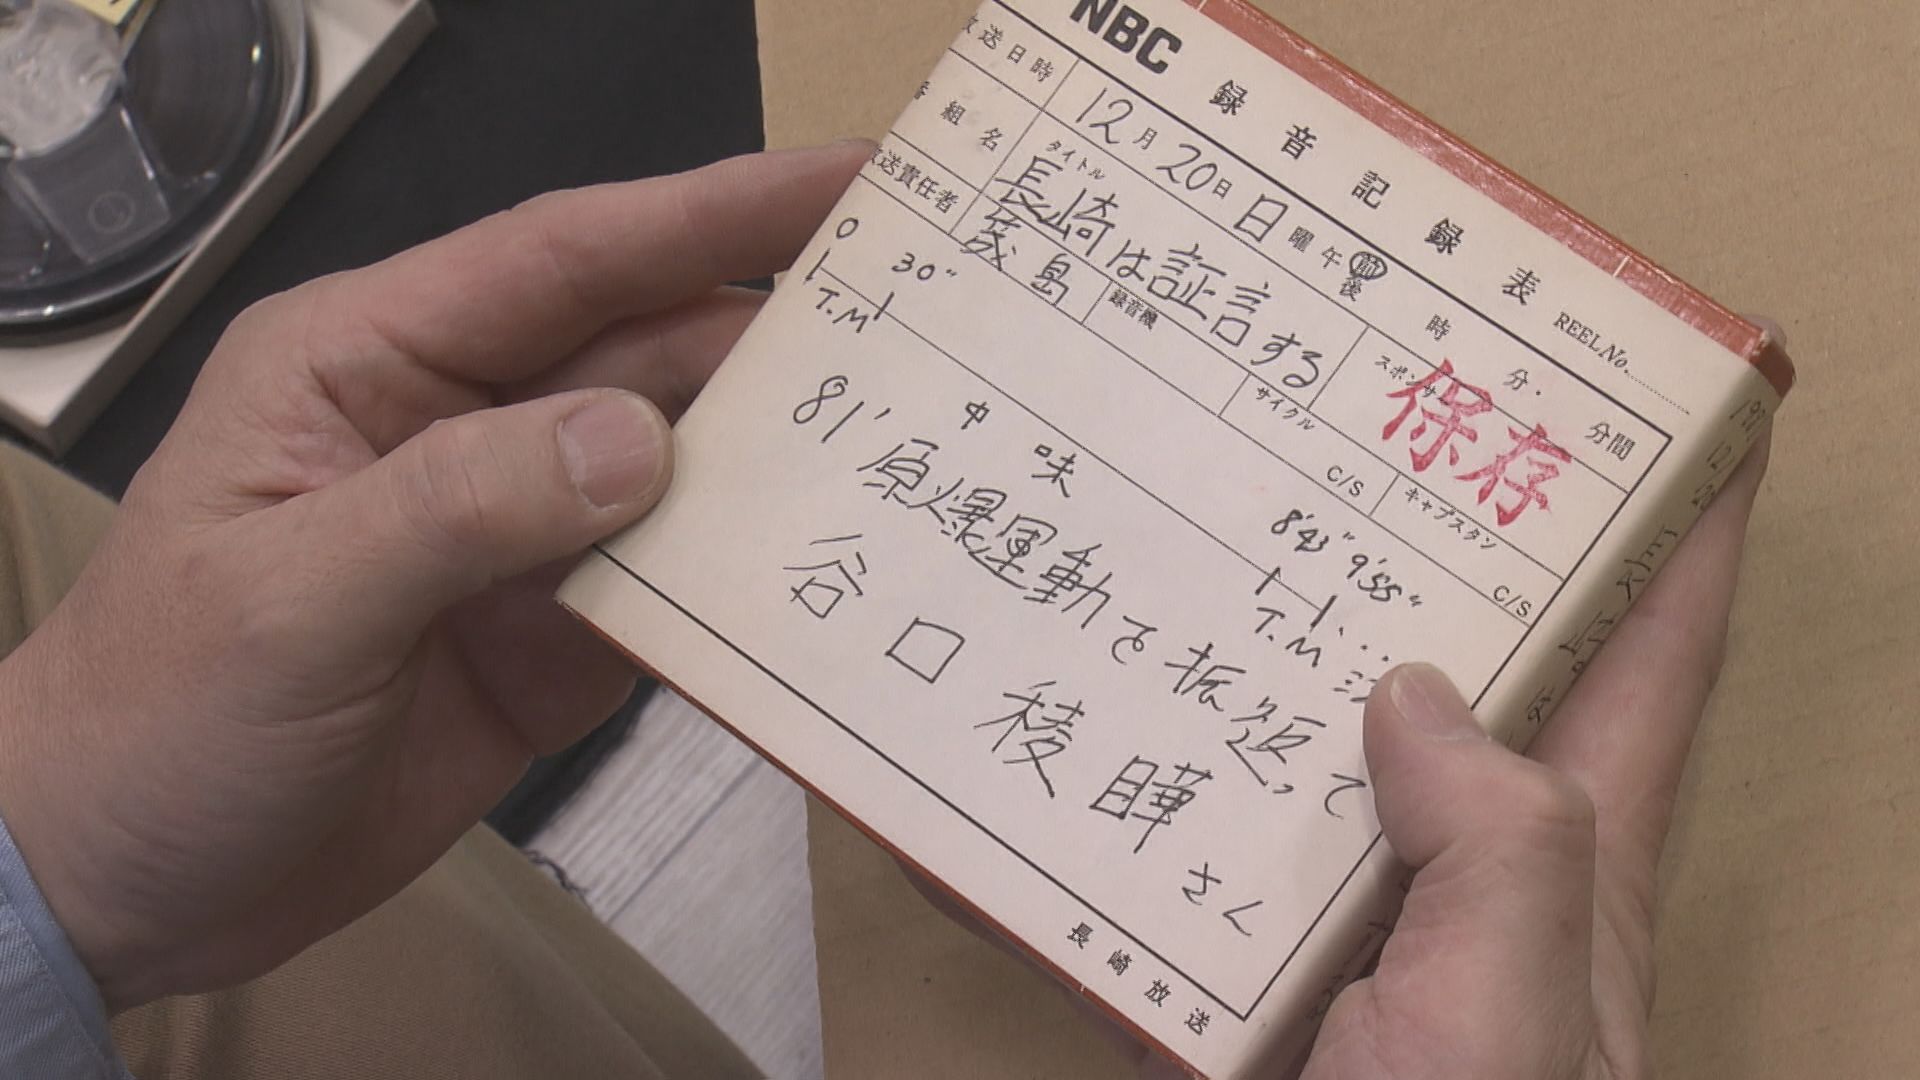 NBC 録音記録表 REEL No.
放送日時 12月20日 日曜 午前後 時 分・ 分間
番組名 タイトル 長崎は証言する スポンサー 保存
放送責任者 蔵島 録音機 サイクル C/S キャプスタン C/S
0 30" 8'43" 9'55"
T.M T.M
中味
81'原爆運動を振返って
谷口稜曄さん
長崎放送
12/20